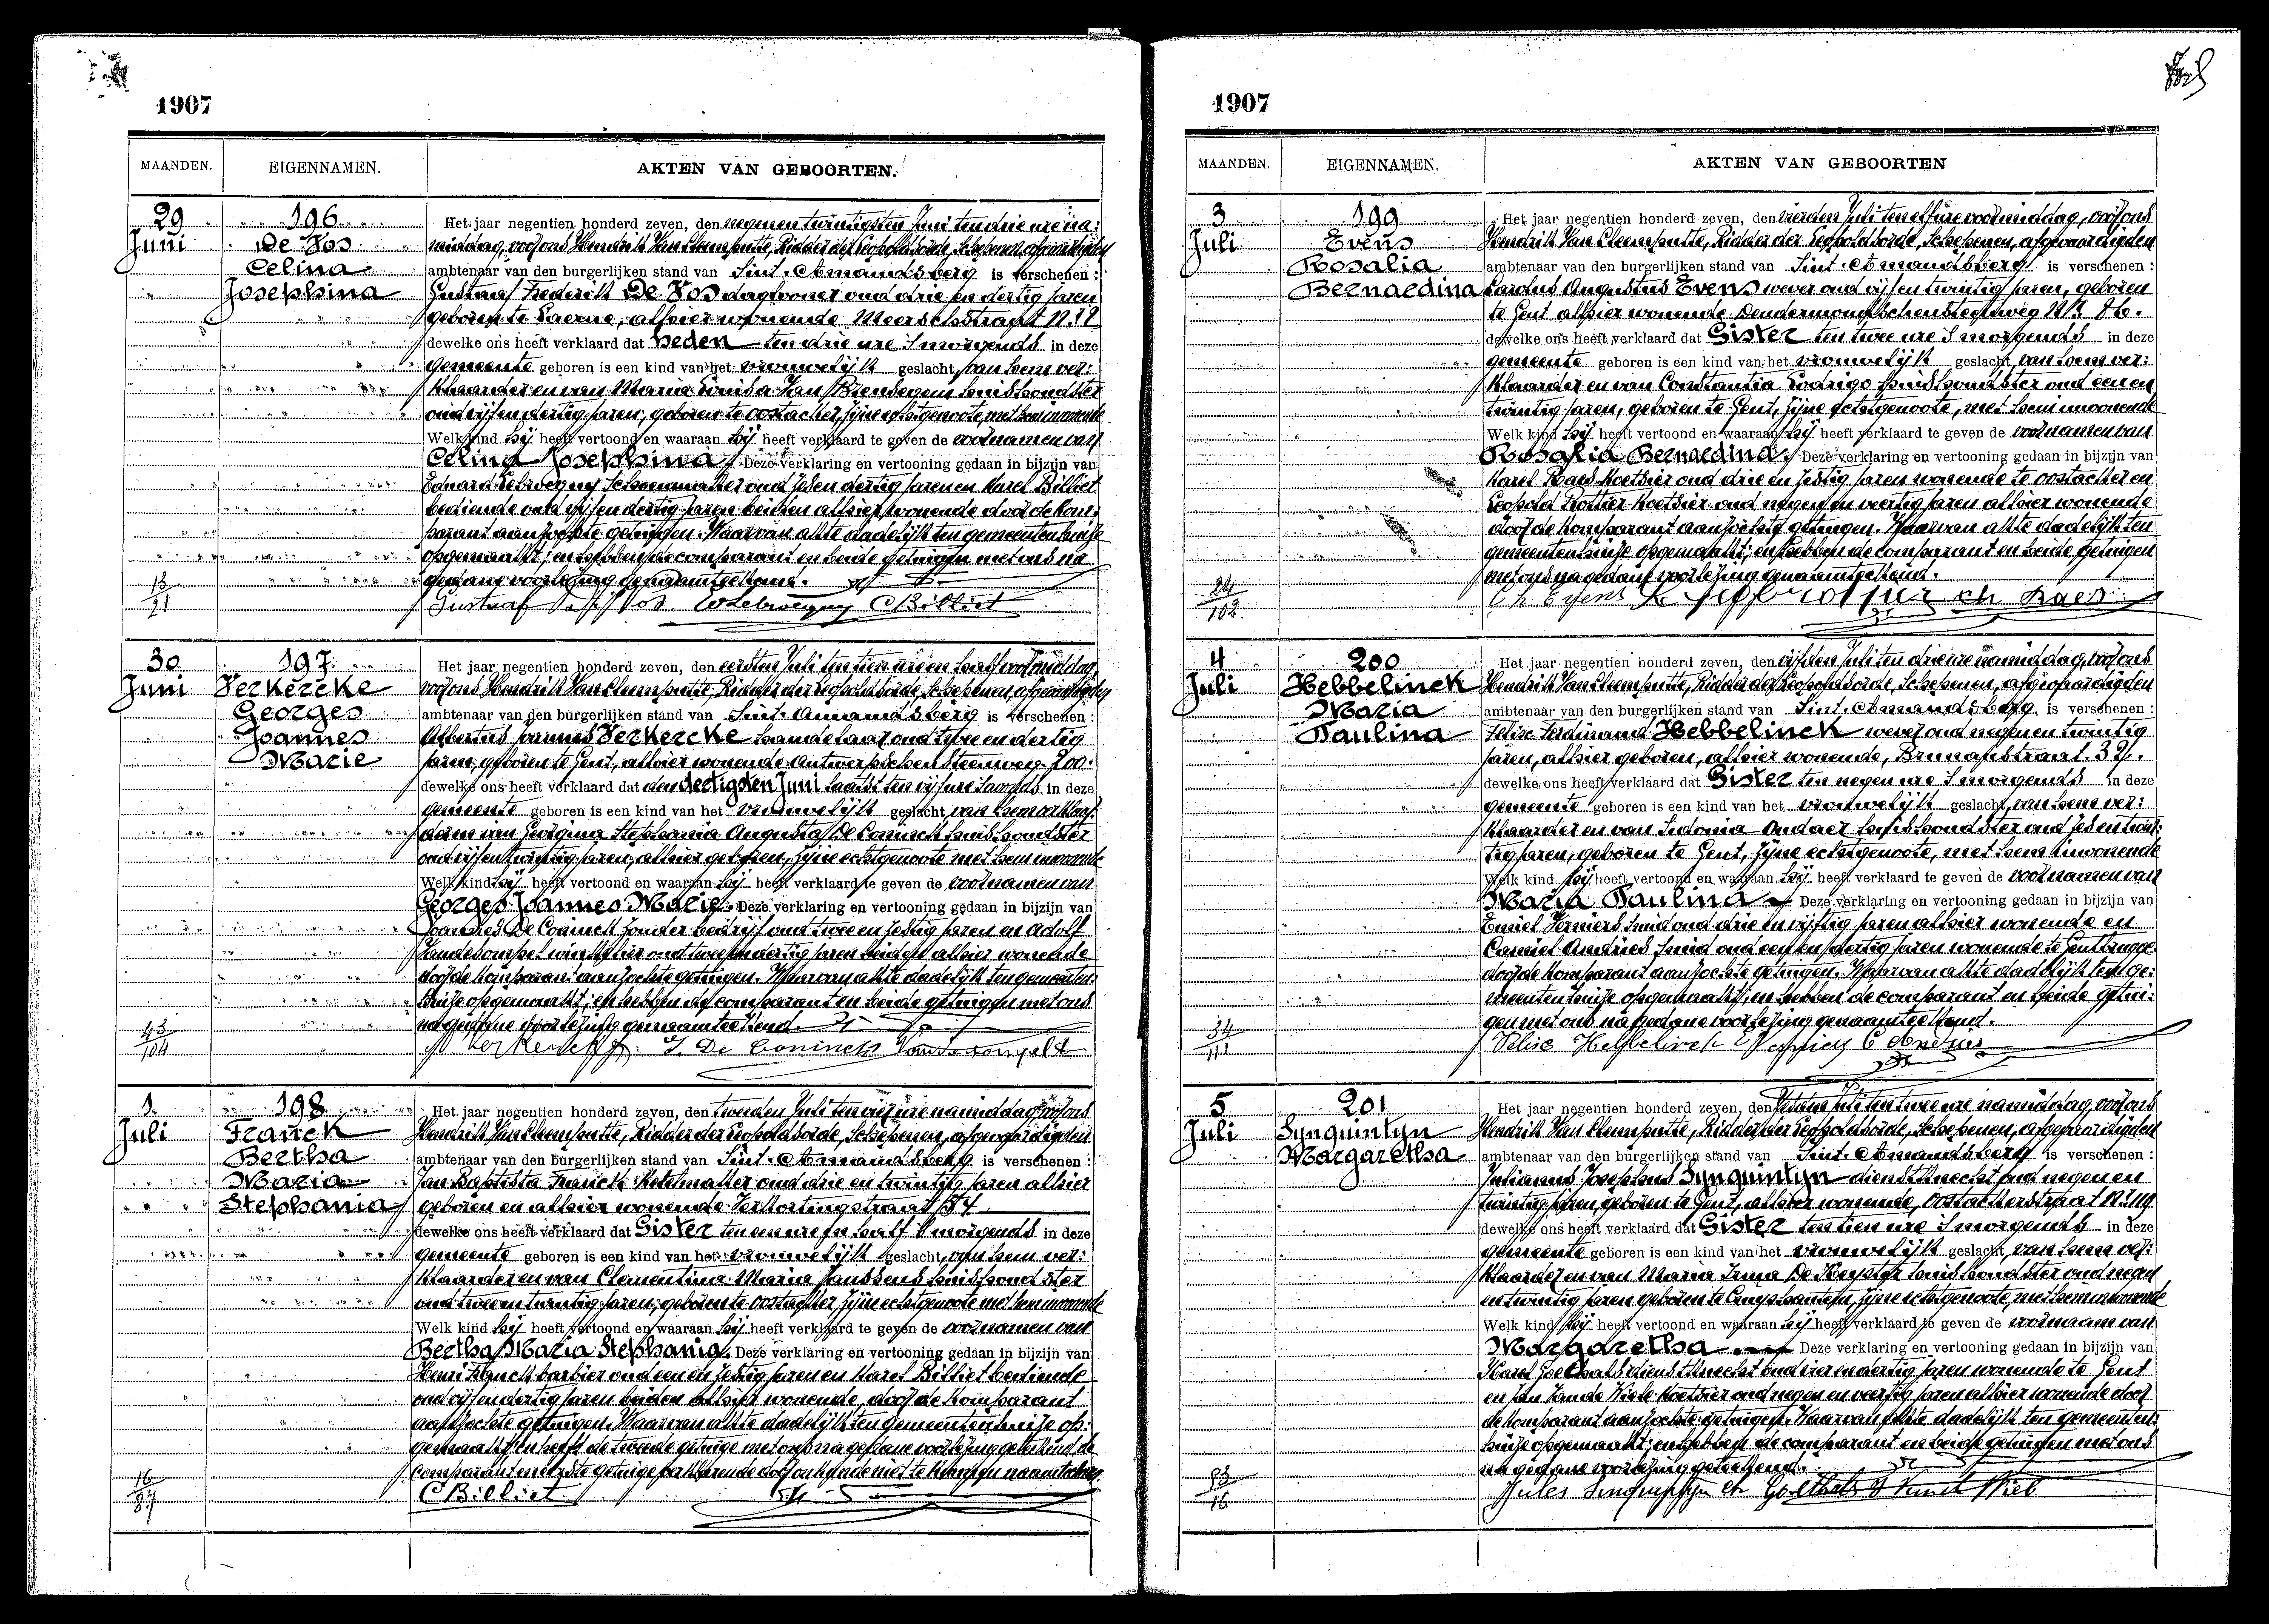 1907
MAANDEN.
EIGENNAMEN.
AKTEN VAN GEBOORTEN.
29
Juni
196
De Vos
Celina
Josephina
Het jaar negentien honderd zeven, den negenentwintigsten Juni ten drie ure na:
middag, voor ons Hendrik Van Cleemputte, Ridder der Leopoldsorde, Schepenen, afgevaardigden
ambtenaar van den burgerlijken stand van Sint-Amandsberg is verschenen :
Gustaaf Frederik De Vos daglooner oud drie en dertig jaren
geboren te Laerne, alhier wonende Meerschstraat N.
dewelke ons heeft verklaard dat heden ten drie ure 's morgends in deze
gemeente geboren is een kind van het vrouwelijk geslacht, van hem ver:
klaarder en van Maria Louisa Van huishoudster
oud vijf en dertig jaren, geboren te Oostacker, zijne echtgenoote, met hem inwonende
Welk kind hij heeft vertoond en waaraan hij heeft verklaard te geven de voornamen van
Celina Josephina. Deze verklaring en vertooning gedaan in bijzijn van
Eduard schoenmaker oud zes en dertig jaren en Karel Billiet
bediende oud vijf en dertig jaren beiden alhier wonende door de kom:
parant aanzochte getuigen. Waarvan akte dadelijk ten gemeentenhuize
opgemaakt; en hebben de comparant en beide getuigen met ons na
gedane voorlezing genaamteekend.
13
21
Gustaaf Vos CBilliet
30
Juni
197
Verkercke
Georges
Joannes
Marie
Het jaar negentien honderd zeven, den eersten Juli ten tien ure en half voormiddag,
voor ons Hendrik Van Cleemputte, Ridder der Leopoldsorde, Schepenen, afgevaardigden
ambtenaar van den burgerlijken stand van Sint-Amandsberg is verschenen :
Albertus Joannes Verkercke handelaar oud twee en dertig
jaren, geboren te Gent, alhier wonende Antwerpschen steenweg 200.
dewelke ons heeft verklaard dat den dertigsten Juni laatst ten vijf ure 's avonds in deze
gemeente geboren is een kind van het vrouwelijk geslacht, van hem verklaar:
der en van Georgina Stephania Augusta De Coninck huishoudster
oud vijf en twintig jaren, alhier geboren, zijne echtgenoote met hem inwonende
Welk kind hij heeft vertoond en waaraan hij heeft verklaard te geven de voornamen van
Georges Joannes Marie. Deze verklaring en vertooning gedaan in bijzijn van
Joannes De Coninck zonder bedrijf oud twee en zestig jaren en Adolf
Vandesompel winkelier oud twee en dertig jaren beiden alhier wonende
door de komparant aanzochte getuigen. Waarvan akte dadelijk ten gemeenten:
huize opgemaakt; en hebben de comparant en beide getuigen met ons
na gedane voorlezing genaamteekend.
43
104
J. De Coninck
1
Juli
198
Franck
Bertha
Maria
Stephania
Het jaar negentien honderd zeven, den tweeden Juli ten vier ure namiddag, voor ons
Hendrik Van Cleemputte, Ridder der Leopoldsorde, Schepenen, afgevaardigden
ambtenaar van den burgerlijken stand van Sint-Amandsberg is verschenen :
Jan Baptista Franck oud drie en twintig jaren alhier
geboren en alhier wonende Verkortingstraat 54
dewelke ons heeft verklaard dat Gister ten een ure en half 's morgends in deze
gemeente geboren is een kind van het vrouwelijk geslacht, van hem ver:
klaarder en van Clementina Maria Janssens huishoudster
oud twee en twintig jaren, geboren te Oostacker zijne echtgenoote met hem inwonende
Welk kind hij heeft vertoond en waaraan hij heeft verklaard te geven de voornamen van
Bertha Maria Stephania. Deze verklaring en vertooning gedaan in bijzijn van
Henri Franck barbier oud een en zestig jaren en Karel Billiet bediende
oud vijf en dertig jaren beiden alhier wonende, door de komparant
aanzochte getuigen. Waarvan akte dadelijk ten gemeentenhuize op:
gemaakt; en heeft de tweede getuige met ons na gedane voorlezing geteekend, de
comparant en eerste getuige verklarende door onkunde niet te kunnen naamteekenen.
16
87
CBilliet
1907
MAANDEN.
EIGENNAMEN.
AKTEN VAN GEBOORTEN
3
Juli
199
Evens
Rosalia
Bernardina
Het jaar negentien honderd zeven, den vierden Juli ten elf ure voormiddag, voor ons
Hendrik Van Cleemputte, Ridder der Leopoldsorde, Schepenen, afgevaardigden
ambtenaar van den burgerlijken stand van Sint-Amandsberg is verschenen :
Carolus Augustus Evens wever oud vijf en twintig jaren, geboren
te Gent alhier wonende Dendermondschensteenweg Nr. 86.
dewelke ons heeft verklaard dat Gister ten twee ure 's morgends in deze
gemeente geboren is een kind van het vrouwelijk geslacht, van hem ver:
klaarder en van Constantia Rodrigo huishoudster oud een en
twintig jaren, geboren te Gent, zijne echtgenoote, met hem inwonende
Welk kind hij heeft vertoond en waaraan hij heeft verklaard te geven de voornamen van
Rosalia Bernardina. Deze verklaring en vertooning gedaan in bijzijn van
Karel Raes koetsier oud drie en zestig jaren wonende te Oostacker en
Leopold Rottier koetsier oud negen en veertig jaren alhier wonende
door de komparant aanzochte getuigen. Waarvan akte dadelijk ten
gemeentenhuize opgemaakt; en hebben de comparant en beide getuigen
met ons na gedane voorlezing genaamteekend.
24
102
Ch Evens ch Raes
4
Juli
200
Hebbelinck
Maria
Paulina
Het jaar negentien honderd zeven, den vijfden Juli ten drie ure namiddag, voor ons
Hendrik Van Cleemputte, Ridder der Leopoldsorde, Schepenen, afgevaardigden
ambtenaar van den burgerlijken stand van Sint-Amandsberg is verschenen :
Felix Ferdinand Hebbelinck wever oud negen en twintig
jaren, alhier geboren, alhier wonende, Brunanstraat 32.
dewelke ons heeft verklaard dat Gister ten negen ure 's morgends in deze
gemeente geboren is een kind van het vrouwelijk geslacht, van hem ver:
klaarder en van Sidonia Andaer huishoudster oud zes en twin:
tig jaren, geboren te Gent, zijne echtgenoote, met hem inwonende
Welk kind hij heeft vertoond en waaraan hij heeft verklaard te geven de voornamen van
Maria Paulina Deze verklaring en vertooning gedaan in bijzijn van
Emiel Verniers smid oud drie en vijftig jaren alhier wonende en
Camiel Andries smid oud een en dertig jaren wonende te Gentbrugge
door de komparant aanzochte getuigen. Waarvan akte dadelijk ten ge:
meentenhuize opgemaakt; en hebben de comparant en beide getui:
gen met ons na gedane voorlezing genaamteekend.
34
111
Felix Hebbelinck C Andries
5
Juli
201
Synquintyn
Margaretha
Het jaar negentien honderd zeven, den zesden Juli ten twee ure namiddag, voor ons
Hendrik Van Cleemputte, Ridder der Leopoldsorde, Schepenen, afgevaardigden
ambtenaar van den burgerlijken stand van Sint-Amandsberg is verschenen :
Julianus Josephus Synquintyn dienstknecht oud negen en
twintig jaren, geboren te Gent, alhier wonende, Oostackerstraat
dewelke ons heeft verklaard dat Gister ten tien ure 's morgends in deze
gemeente geboren is een kind van het vrouwelijk geslacht, van hem ver:
klaarder en van Maria Irma De Keyster huishoudster oud negen
en twintig jaren geboren te Cruyshautem, zijne echtgenoote, met hem inwonende
Welk kind hij heeft vertoond en waaraan hij heeft verklaard te geven de voornaam van
Margaretha. Deze verklaring en vertooning gedaan in bijzijn van
Karel Goethals dienstknecht oud vier en dertig jaren wonende te Gent
en Jan Van de Wiele koetsier oud negen en veertig jaren alhier wonende door
de komparant aanzochte getuigen. Waarvan akte dadelijk ten gemeenten:
huize opgemaakt; en hebben de comparant en beide getuigen met ons
na gedane voorlezing geteekend.
93
16
Jules Synquintyn ch Goethals